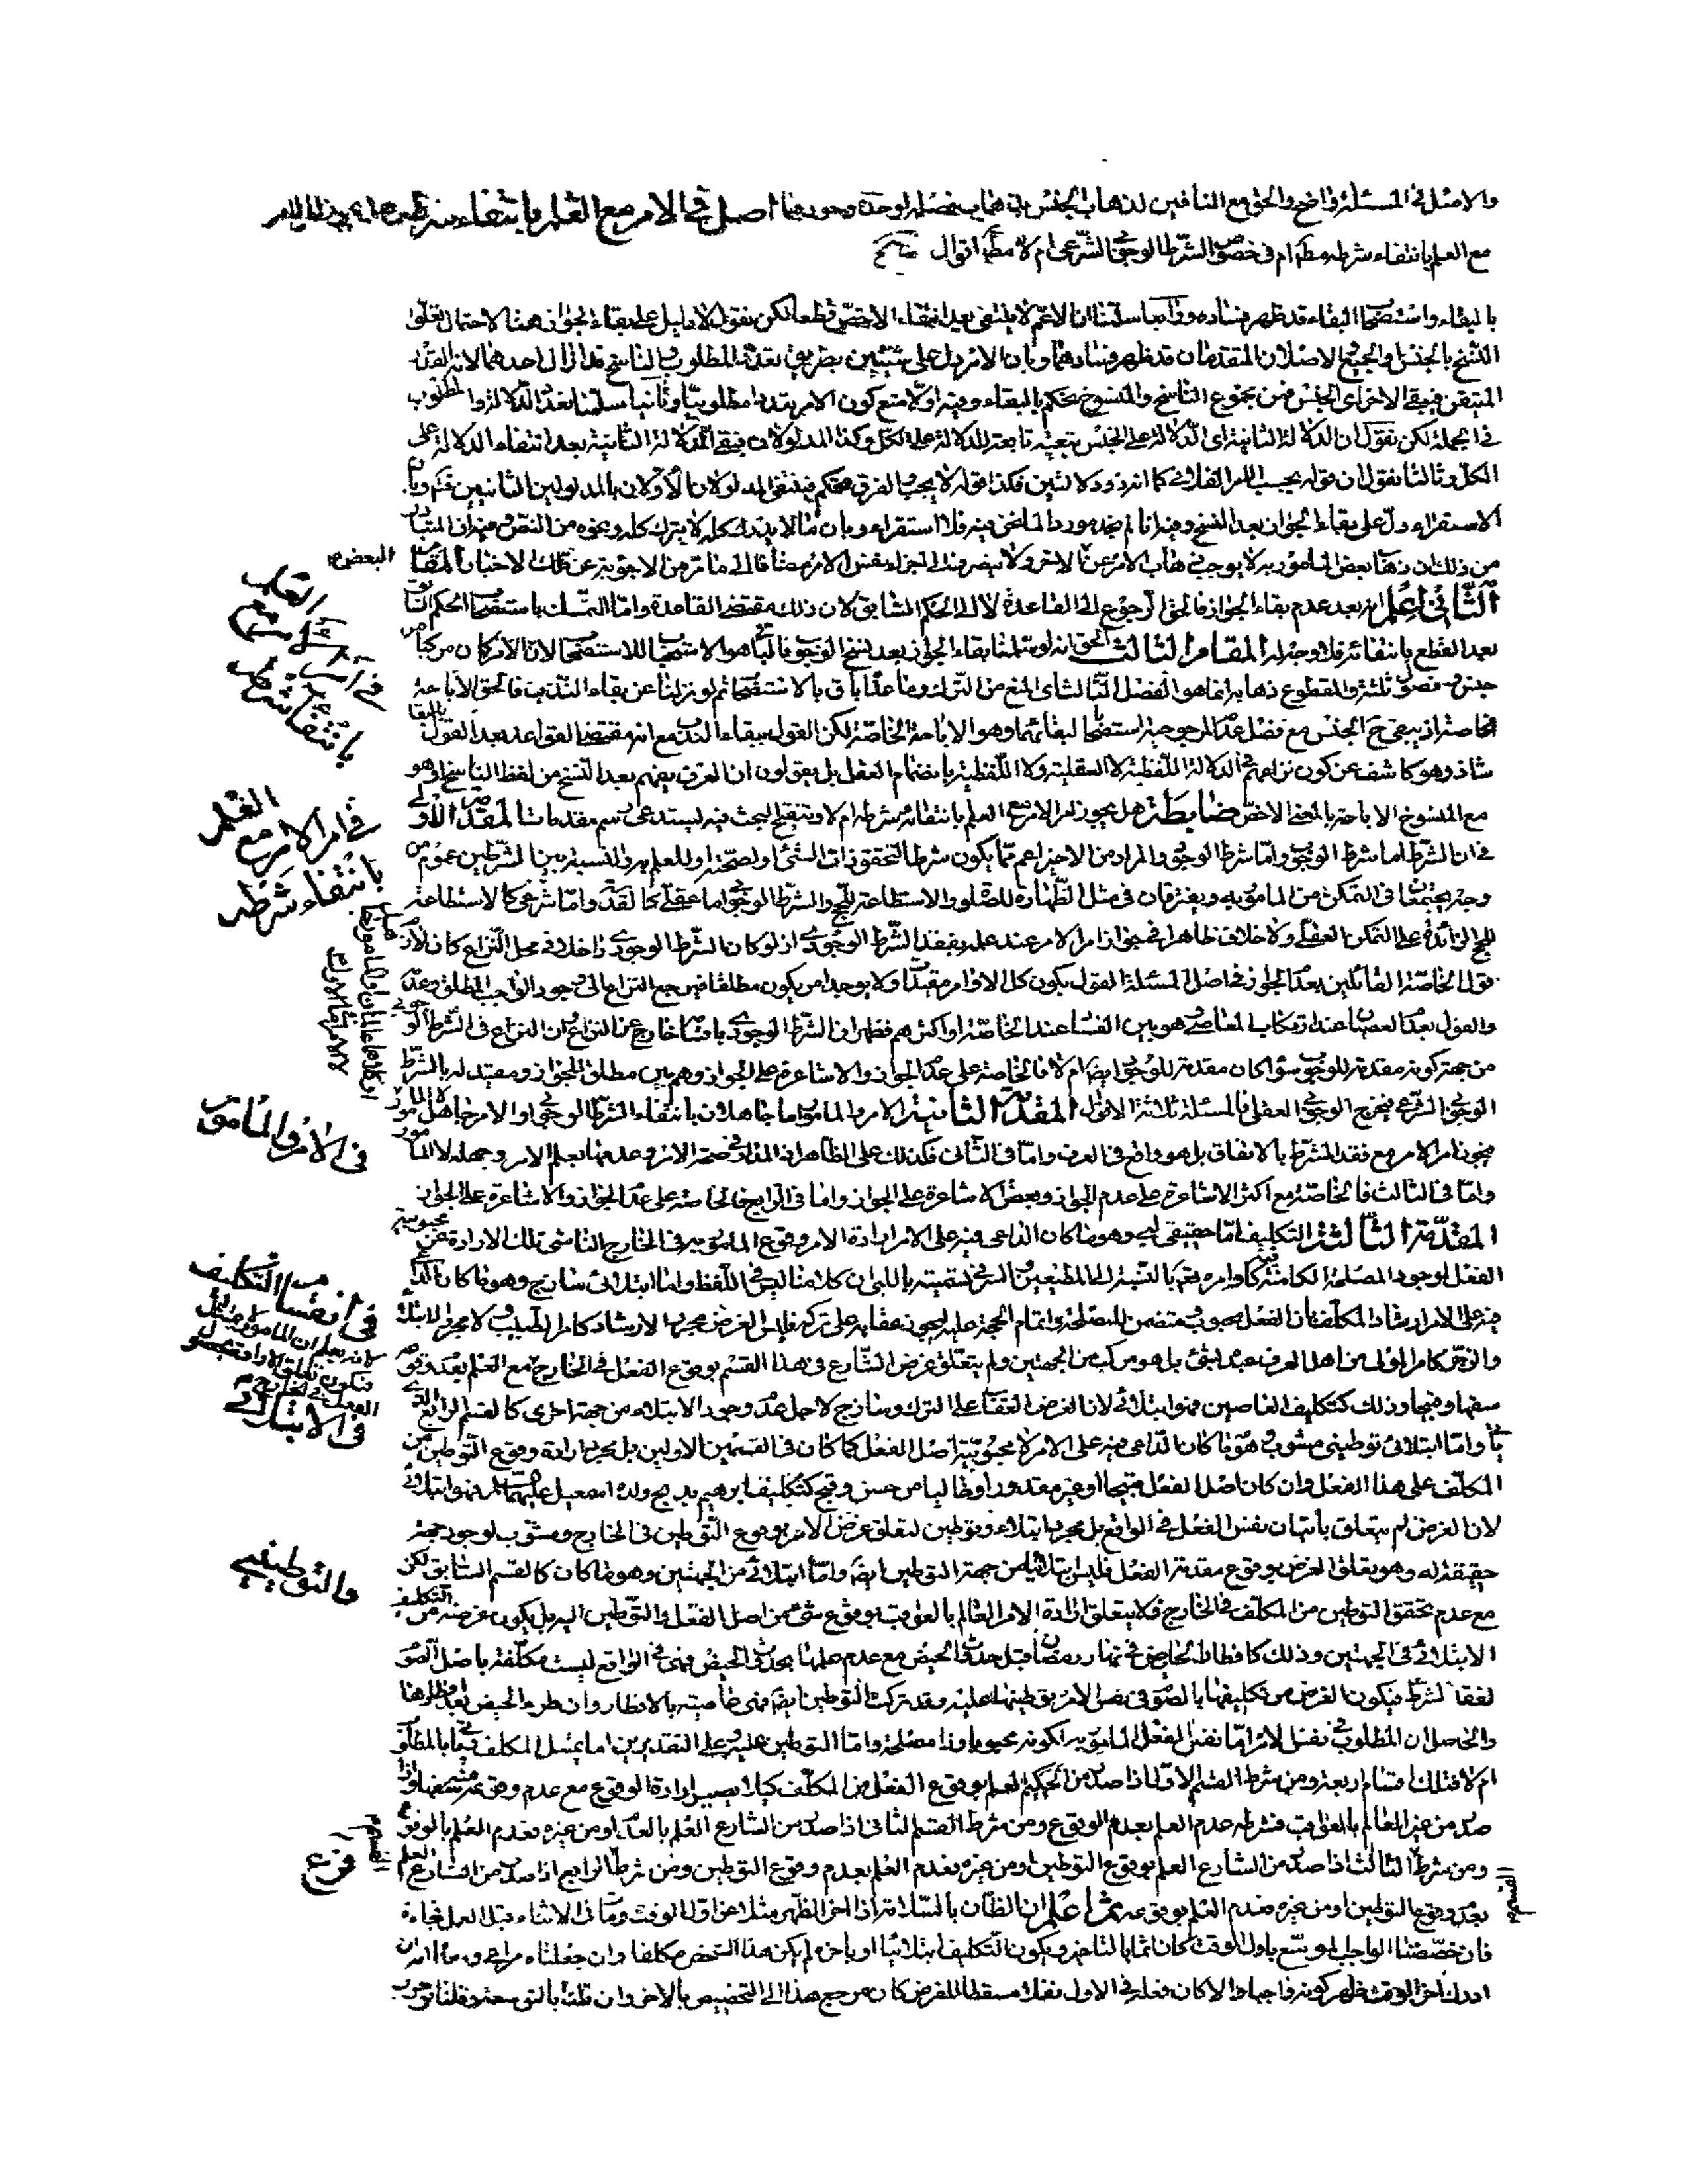 والاصل فى المسئلة واضح والحق مع النافين لذهاب الجنس بذهاب فصله لوحدة وجودهما اصل فى الامر مع العلم بانتفاء شرطه
مع العلم بانتفاء شرطه مطلقا ام فى خصوص الشرط الوجوبى الشرعى ام لا مطلقا اقوال
بالبقاء واستصحاب البقاء قد ظهر فساده وثانيا سلمنا ان الاعم لا ينتفى بعد انتفاء الاخص قطعا لكن نقول لا دليل على بقاء الجواز هنا لاحتمال تعلق
النسخ بالجنس والجميع الاصلان المتقدمان قد ظهر فسادهما وبان الامر يدل على شيئين بطريق تعدد المطلوب والناسخ قد ازال احدهما لانه القدر
المتيقن فيبقى الاخر اى الجنس فمن مجموع الناسخ والمنسوخ يحكم بالبقاء وفيه اولا منع كون الامر متعددا مطلوبيا وثانيا سلمنا تعدد الدلالة والمطلوب
فى الجملة لكن نقول ان الدلالة الثانية اى الدلالة على الجنس تبعية تابعة للدلالة على الكل وكذا المدلولان فيبقى الدلالة الثانية بعد انتفاء الدلالة على
الكل وثالثا نقول ان قوله يجب الامر الفلانى كما انه ذو دلالتين فكذا قوله لا يجب والفرق تحكم فينتفى المدلولان الاولان بالمدلولين الثانيين فتم وبان
الاستقراء دل على بقاء الجواز بعد النسخ وفيه انا لم نجد مورد الما نحن فيه فلا استقراء وبان ما لا يدرك كله لا يترك كله ونحوه من النصوص وفيه ان المتبادر
من ذلك ان ذهاب بعض المامور به لا يوجب ذهاب الامر عن الاخر ولا ينصرف ذلك الى اجزاء نفس الامر مضافا الى ما مر من الاجوبة عن تلك الاخبار المقام
الثانى اعلم انه بعد عدم بقاء الجواز فالحق الرجوع الى القاعدة لا الى الحكم السابق لان ذلك مقتضى القاعدة واما التمسك باستصحاب الحكم السابق
بعد القطع بانتفائه فلا وجه له المقام الثالث الحق انه لو سلمنا بقاء الجواز بعد نسخ الوجوب فالباقى هو الاستحباب للاستصحاب لان الامر كان مركبا من
جنس وفصول ثلثة والمقطوع ذهابه انما هو الفصل الثالث اى المنع من الترك وما عداه باق بالاستصحاب ثم لو نزلنا عن بقاء الندب فالحق الاباحة
الخاصة اذ يبقى ح الجنس مع فصل عدم المرجوحية استصحابا لبقائهما وهو الاباحة الخاصة لكن القول ببقاء الندب مع انه مقتضى القواعد بعد القول بالبقاء
شاذ وهو كاشف عن كون نزاعهم فى الدلالة اللفظية لا العقلية ولا اللفظية بانضمام العقل بل يقولون ان العرف يفهم بعد النسخ من لفظ الناسخ او هو
مع المنسوخ الاباحة بالمعنى الاخص ضابطة هل يجوز امر الامر مع العلم بانتفاء شرطه ام لا وتنقيح البحث فيه يستدعى رسم مقدمات المقدمة الاولى
فى ان الشرط اما شرط الوجود واما شرط الوجوب والمراد من الاخير اعم مما يكون شرطا لتحقق ذات الشئ او لصحته او للعلم به والنسبة بين الشرطين عموم من
وجه يجتمعان فى التمكن من المامور به ويفترقان فى مثل الطهارة للصلوة والاستطاعة للحج والشرط الوجوبى اما عقلى كالقدرة واما شرعى كالاستطاعة
للحج الزائدة على التمكن العقلى ولا خلاف ظاهرا فى جواز امر الامر عند علمه بفقد الشرط الوجودى اذ لو كان الشرط الوجودى داخلا فى محل النزاع كان لازم
قول الخاصة القائلين بعدم الجواز فى اصل المسئلة القول بكون كل الاوامر مقيدا ولا يوجد امر يكون مطلقا فيرجع النزاع الى وجود الواجب المطلق وعدمه
والقول بعدم العصيان عند ارتكاب المعاصى هو بين الفساد عند الخاصة او اكثرهم فظهر ان الشرط الوجودى باقسامه خارج عن النزاع وان النزاع فى الشرط الوجوبى
من جهة كونه مقدمة للوجوب سواء كان مقدمة للوجود ايضا ام لا فالخاصة على عدم الجواز والاشاعرة على الجواز وهم بين مطلق للجواز ومقيد له بالشرط
الوجوبى الشرعى فيخرج الوجوبى العقلى فالمسئلة ثلاثة الاقوال المقدمة الثانية الامر والمامور اما جاهلان بانتفاء الشرط الوجوبى او الامر جاهل لا المامور
فيجوز امر الامر مع فقد الشرط بالاتفاق بل هو واقع فى العرف واما فى الثانى فكذلك على الظاهر اذ المناط فى صحة الامر وعدمها بعلم الامر وجهله لا المامور
واما فى الثالث فالخاصة مع اكثر الاشاعرة على عدم الجواز وبعض الاشاعرة على الجواز واما فى الرابع فالخاصة على عدم الجواز والاشاعرة على الجواز
المقدمة الثالثة التكليف اما حقيقى لبى وهو ما كان الداعى فيه على الامر ارادة الامر وقوع المامور به فى الخارج الناشى تلك الارادة عن محبوبية
الفعل لوجود المصلحة الكامنة فيه كاوامره تعالى بالنسبة الى المطيعين والسر فى تسميته باللبى ان كلامنا ليس فى اللفظ واما ابتلائى ساذج وهو ما كان الداعى
فيه على الامر ارشاد المكلف بان الفعل محبوب متضمن للمصلحة واتمام الحجة عليه ليجوز عقابه على تركه فليس الغرض مجرد الارشاد كامر الطبيب ولا مجرد الابتلاء
والزجر كامر المولى من اهل العرف عبده بشئ بل هو مركب من الجهتين ولم يتعلق غرض الشارع فى هذا القسم بوقوع الفعل فى الخارج مع العلم بعدم وقوعه
سفها وقبحا وذلك كتكليف العاصين فهو ابتلائى لان الغرض العقاب على الترك وساذج لاجل عدم وجود الابتلاء من جهة اخرى كالقسم الرابع الذى
ياتى واما ابتلائى توطينى مشوب وهو ما كان الداعى فيه على الامر لا محبوبية اصل الفعل كما كان فى القسمين الاولين بل مجرد ارادة وقوع التوطين من
المكلف على هذا الفعل وان كان اصل الفعل قبيحا او غير مقدور او خاليا من حسن وقبح كتكليف ابرهيم بذبح ولده اسمعيل عليهما السلام فهو ابتلائى
لان الغرض لم يتعلق باتيان نفس الفعل فى الواقع بل مجرد ابتلاء وتوطين لتعلق غرض الامر بوقوع التوطين فى الخارج ومشوب لوجود جهة
حقيقة له وهو تعلق الغرض بوقوع مقدمة الفعل فليس ابتلائيا من جهة التوطين ايضا واما ابتلائى من الجهتين وهو ما كان كالقسم السابق لكن
مع عدم تحقق التوطين من المكلف فى الخارج فلا يتعلق ارادة الامر العالم بالعواقب بوقوع شئ من اصل الفعل والتوطين اليه بل يكون غرضه من التكليف
الابتلائى فى الجهتين وذلك كافطار الحائض فى نهار رمضان قبل حدوث الحيض مع عدم علمها بحدوث الحيض فهى فى الواقع ليست مكلفة باصل الصوم
لفقد الشرط فيكون الغرض من تكليفها بالصوم فى نفس الامر توطينها عليه وقد تركت التوطين ايضا فهى عاصية بالافطار وان طرء الحيض بعد افطارها
والحاصل ان المطلوب فى نفس الامر اما نفس الفعل المامور به لكونه محبوبا وذا مصلحة واما التوطين عليه وعلى التقديرين اما يمتثل المكلف فى بالمطلوب
ام لا فتلك اقسام اربعة ومن شرط القسم الاول اذا صدر من الحكيم العلم بوقوع الفعل من المكلف كيلا يصير ارادة الوقوع مع عدم وقوعه منه سفها واذا
صدر من غير العالم بالعواقب فشرطه عدم العلم بعدم الوقوع ومن شرط القسم الثانى اذا صدر من الشارع العلم بالعدم او من غيره فعدم العلم بالوقوع
ومن شرط الثالث اذا صدر من الشارع العلم بوقوع التوطين او من غيره فعدم العلم بعدم وقوع التوطين ومن شرط الرابع اذا صدر من الشارع العلم
بعدم وقوع التوطين او من غيره فعدم العلم بوقوعه ثم اعلم ان الظان بالسلامة اذا اخر الظهر مثلا عن اول الوقت ومات فى الاثناء قبل العمل فجاءة
فان خصصنا الواجب الموسع باول الوقت كان اثما بالتاخير ويكون التكليف ابتلائيا او باخره لم يكن هذا الشخص مكلفا وان جعلناه مراعى
ادرك اخر الوقت ظهر كونه واجبا والا كان فعله فى الاول نفلا مسقطا للفرض كان مرجع هذا الى التخصيص بالاخر وان قلنا بالتوسعة وقلنا بوجوب
البعض
فى امر الامر مع العلم
بانتفاء شرطه
فى الامر والمامور
فى اقسام التكليف
فى الابتلائى
والتوطينى
فرع